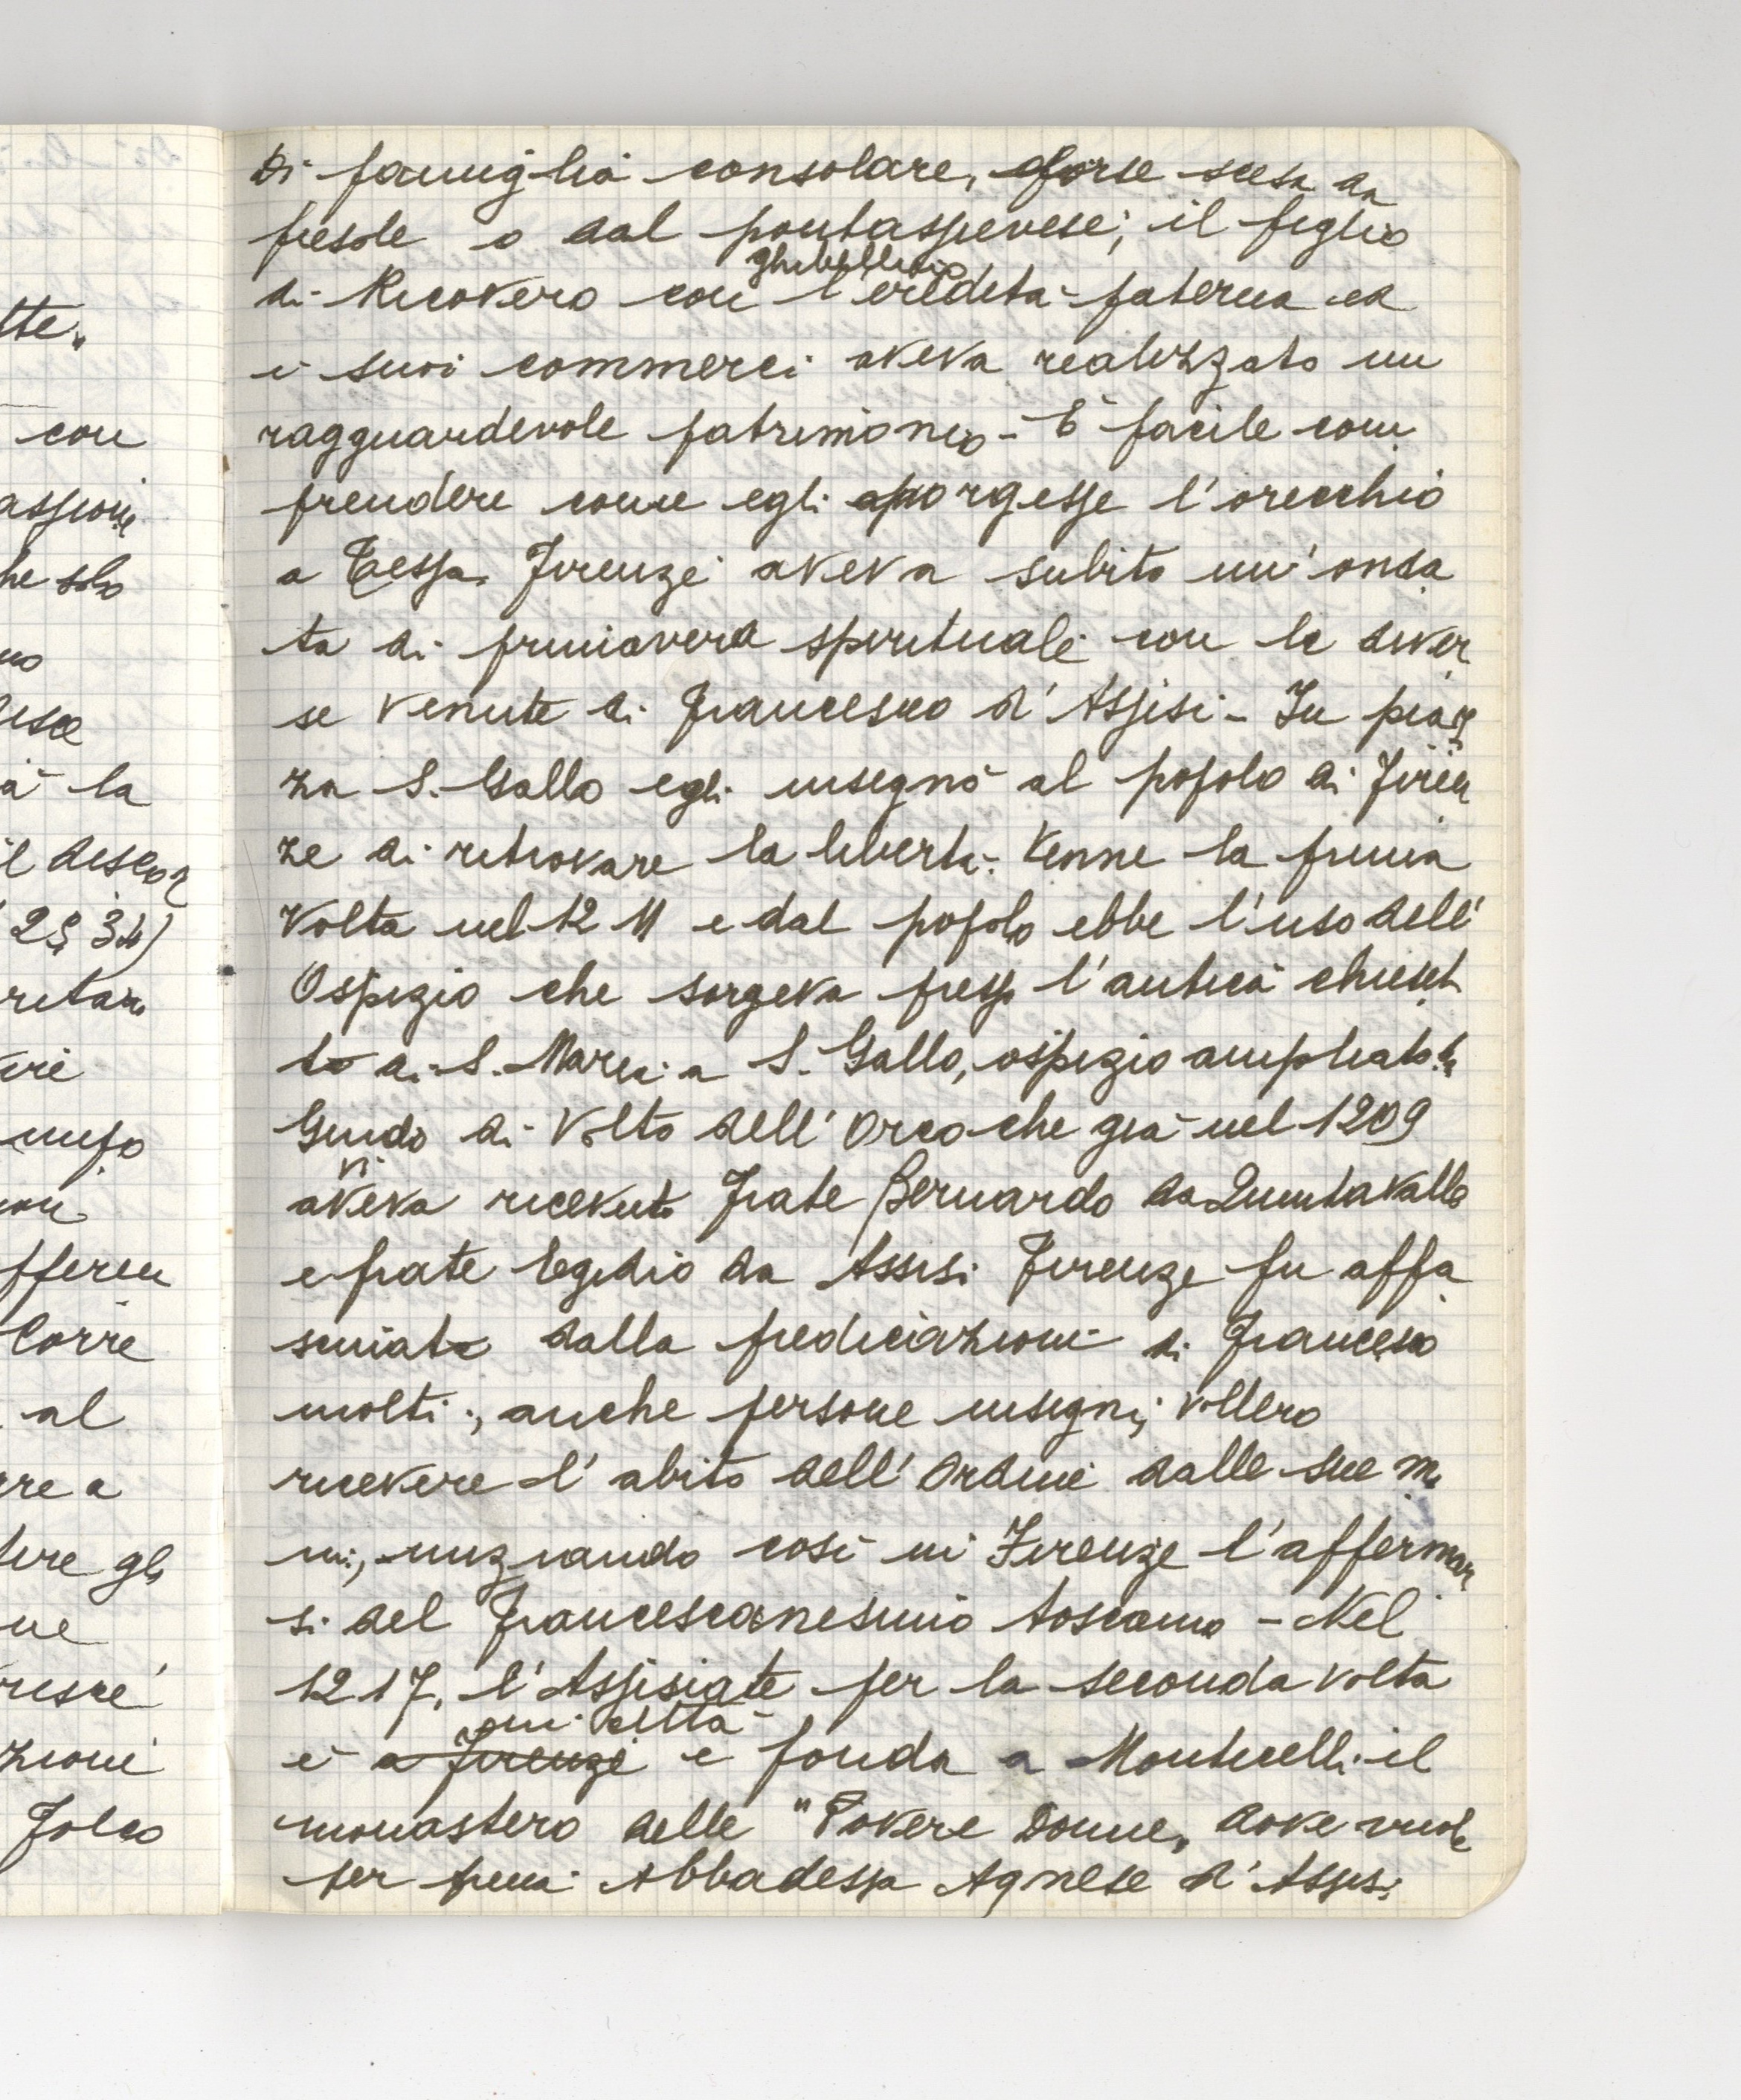 tte„
con
assione
he solo
no
a la
il discor
2§ 3b)
ritan
ire
mpo
fferen
Corre
al
re a
ere gli
ne
zioni
Folco
Di famiglia consolare, forse scesa da
fiesole o dal pontassievese; il figlio
ghibellino
di Ricovero con l'eredità paterna ed
i suoi commerci aveva realizzato un
ragguardevole patrimonio - È facile com
prendere come egli porgesse l'orecchio
a Tessa. Firenze aveva subito un'onda
ta di primavera spirituale con le diver
se venute di Francesco d'Assisi - In piaz
za S. Gallo egli insegnò al popolo di Firen
ze di ritrovare la libertà. Venne la prima
volta nel 1211 e dal popolo ebbe l'uso dell'
Ospizio che sorgeva presso l'antica chieset
ta di S. Maria a S. Gallo, ospizio ampliato da
Guido di Volto dell'Orco che già nel 1209
vi
aveva ricevuto Frate Bernardo da Quintavalle
e frate Egidio da Assisi Firenze fu affa
scinata dalla predicazione di Francesco
molti, anche persone insigni, vollero
ricevere l'abito dell'Ordine dalle sue ma
ni, iniziando così in Firenze l'affermar
si del Francescanesimo toscano - Nel
1217, l'Assisiate per la seconda volta
in città
è a Firenze e fonda a Monticelli il
monastero delle "Povere Donne„ dove vuole
per prima Abbadessa Agnese d'Assisi